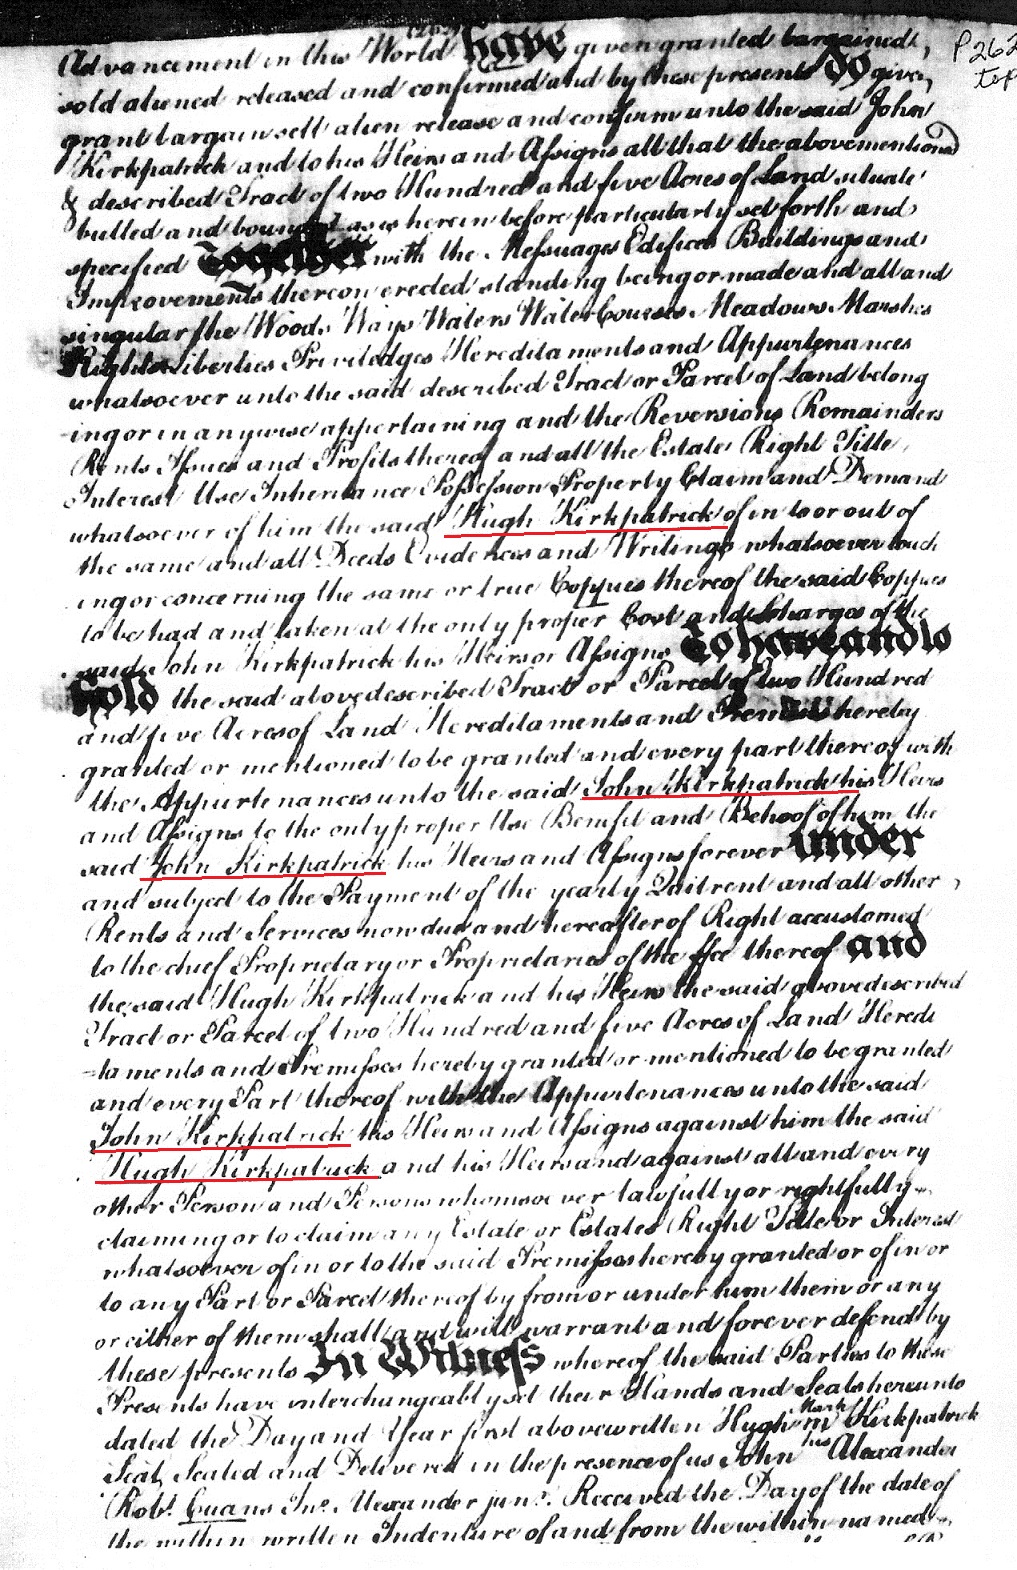 (262)
P 262
top
Advancement in this World Have given granted bargained,
sold aliened released and confirmed and by these presents Do give,
grant bargain sell alien release and confirm unto the said John
Kirkpatrick and to his Heirs and Assigns all that the abovementioned
& described Tract of two Hundred and five Acres of Land situate
butted and bounded as is herein before particularly set forth and
specified Together with the Messuages Edifices Buildings and
Improvements thereon erected standing being or made and all and
singular the Woods Ways Waters Water Courses Meadows Marshes
Rights Liberties Priviledges Hereditaments and Appurtenances
whatsoever unto the said described Tract or Parcel of Land belong
-ing or in anywise appertaining and the Reversions Remainders
Rents Issues and Profits thereof and all the Estate Right Title,
Interest Use Inheritance Possession Property Claim and Demand
whatsoever of him the said Hugh Kirkpatrick of in to or out of
the same and all Deeds Evidences and Writings whatsoever touch
ing or concerning the same or true Coppies thereof the said Coppies
to be had and taken at the only proper Cost and Charges of the
said John Kirkpatrick his Heirs or Assigns To have and to
hold the said above described Tract or Parcel of two Hundred
and five Acres of Land Hereditaments and Premises hereby
granted or mentioned to be granted and every part thereof with
the Appurtenances unto the said John Kirkpatrick his Heirs
and Assigns to the only proper Use Benefit and Behoof of him the
said John Kirkpatrick his Heirs and Assigns forever under
and subject to the Payment of the yearly Quitrent and all other
Rents and Services now due and hereafter of Right accustomed
to the chief Proprietary or Proprietaries of the ffee thereof and
the said Hugh Kirkpatrick and his Heirs the said abovedescribed
Tract or Parcel of two Hundred and five Acres of Land Heredi
-taments and Premisses hereby granted or mentioned to be granted
and every Part thereof with the Appurtenances unto the said
John Kirkpatrick his Heirs and Assigns against him the said
Hugh Kirkpatrick and his Heirs and against all and every
other Person and Persons whomsoever lawfully or rightfully
claiming or to claim any Estate or Estates Right Title or Interest
whatsoever of in or to the said Premisses hereby granted or of in or
to any Part or Parcel thereof by from or under him them or any
or either of them shall and will warrant and forever defend by
these presents In Witness whereof the said Parties to these
Presents have interchangeably set their Hands and Seals hereunto
dated the Day and Year first above written Hugh Mark m his Kirkpatrick
Seal, Sealed and Delivered in the presence of us John Alexander
Robt. Euans Jno. Alexander junr. Received the Day of the date of
the within written Indenture of and from the within named